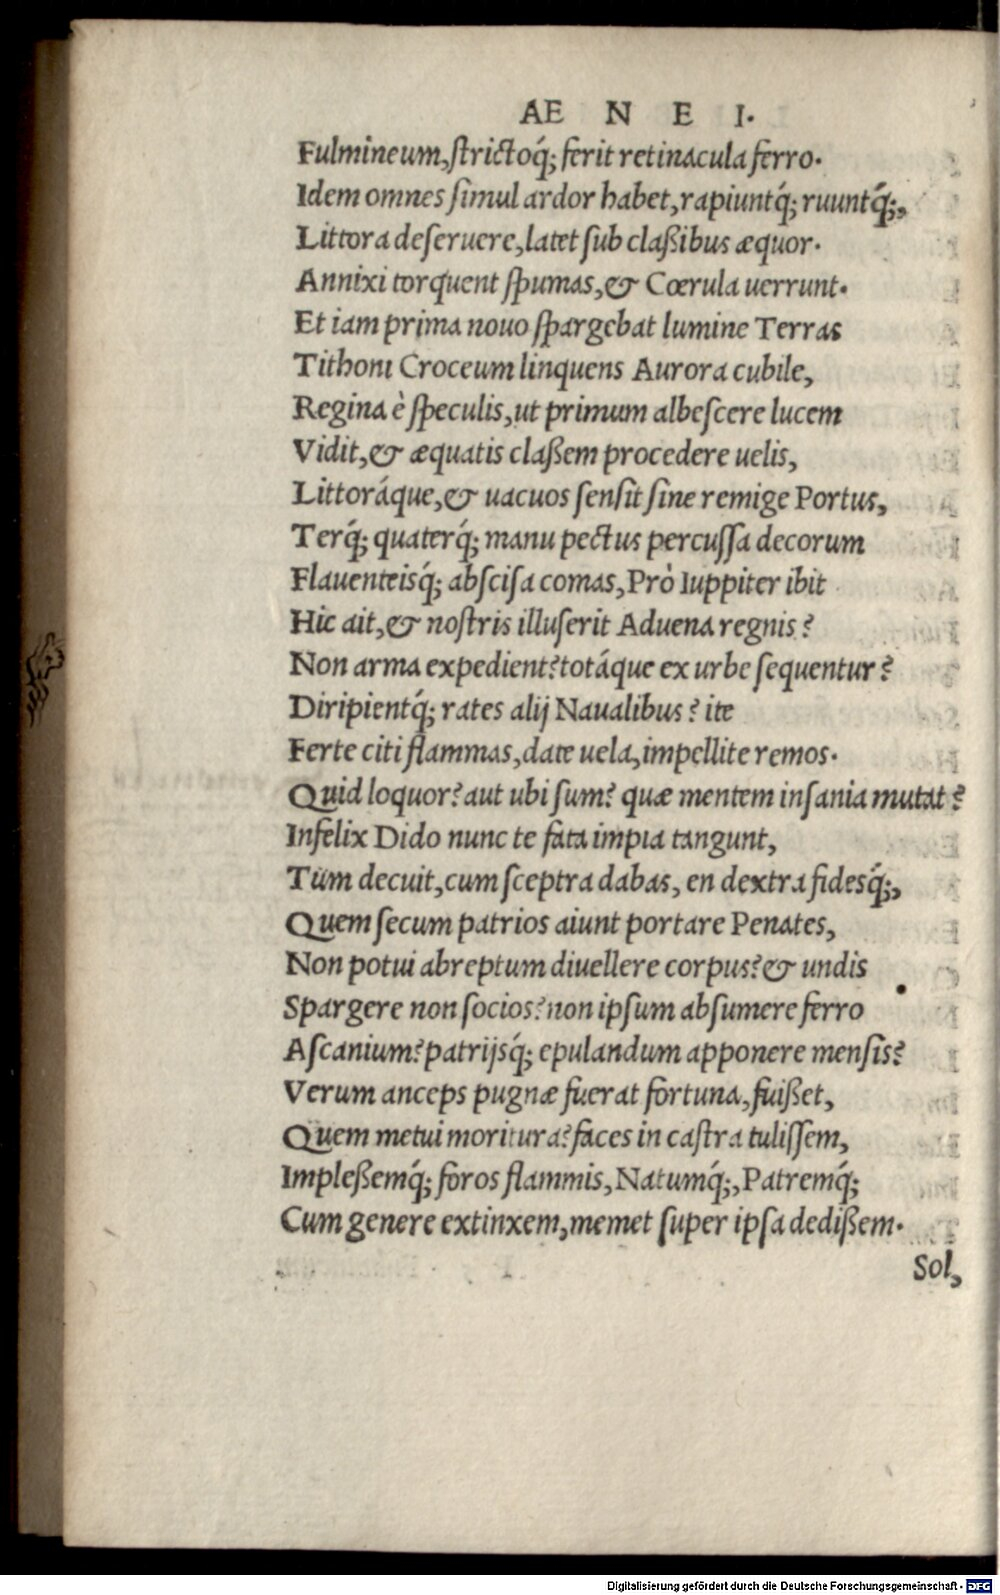 AE N E I.
Fulmineum, ſtrictoq́; ferit retinacula ferro.
Idem omnes ſimul ardor habet, rapiuntq́; ruuntq́;,
Littora deſeruere, latet ſub claßibus æquor.
Annixi torquent ſpumas, & Cœrula uerrunt.
Et iam prima nouo ſpargebat lumine Terras
Tithoni Croceum linquens Aurora cubile,
Regina è ſpeculis, ut primum albeſcere lucem
Vidit, & æquatis claßem procedere uelis,
Littoráque, & uacuos ſenſit ſine remige Portus,
Terq́; quaterq́; manu pectus percuſſa decorum
Flauenteisq́; abſciſa comas, Prò Iuppiter ibit
Hic ait, & noſtris illuſerit Aduena regnis?
Non arma expedient? totáque ex urbe ſequentur?
Diripientq́; rates alij Naualibus? ite
Ferte citi flammas, date uela, impellite remos.
Quid loquor? aut ubi ſum? quæ mentem inſania mutat?
Infelix Dido nunc te fata impia tangunt,
Tum decuit, cum ſceptra dabas, en dextra fidesq́;,
Quem ſecum patrios aiunt portare Penates,
Non potui abreptum diuellere corpus? & undis
Spargere non ſocios? non ipſum abſumere ferro
Aſcanium? patrijsq́; epulandum apponere menſis?
Verum anceps pugnæ fuerat fortuna, fuißet,
Quem metui moritura? faces in caſtra tuliſſem,
Impleßemq́; foros flammis, Natumq́;, Patremq́;
Cum genere extinxem, memet ſuper ipſa dedißem.
Sol,
Digitalisierung gefördert durch die Deutsche Forschungsgemeinschaft - DFG